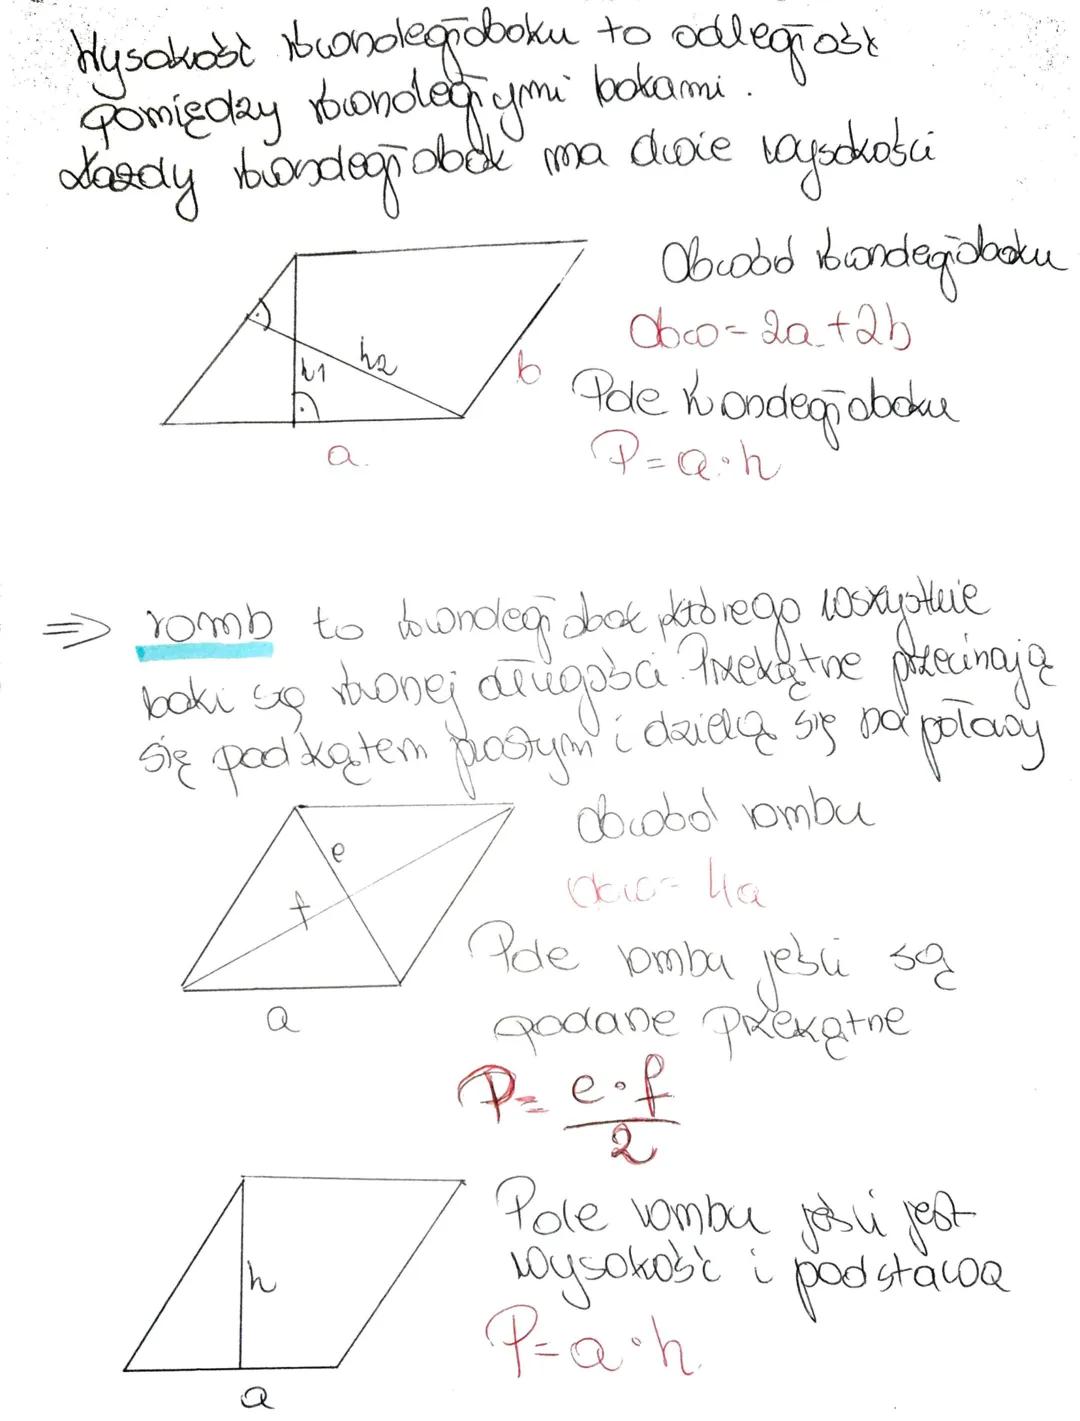 Wysokość równoległoboku to odległość
pomiędzy równoległymi bokami.
Każdy równoległobok ma dwie wysokości
Obwód równoległoboku
obw = 2a + 2b
h1
h2
b
a
Pole równoległoboku
P = a · h
⇒ romb to równoległobok którego wszystkie
boki są równej długości. Przekątne przecinają
się pod kątem prostym i dzielą się na połowy
obwód rombu
e
f
a
obw = 4a
Pole rombu jeśli są
podane przekątne
P = e · f
2
Pole rombu jeśli jest
wysokość i podstawa
h
P = a · h
a